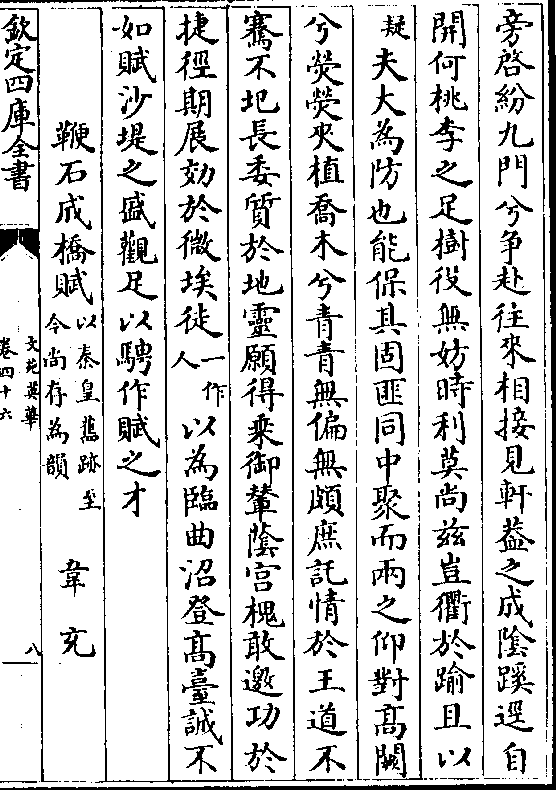 旁啓紛九門兮争赴往來相接見軒葢之成陰蹊逕自
開何桃李之足樹役無妨時利莫尚兹豈衢於踰且以
疑夫大為防也能保其固匪同中聚而兩之仰對髙闕
兮熒熒夾植喬木兮青青無偏無頗庶託情於王道不
騫不圯長委質於地靈願得乗御輦蔭宫槐敢邀功於
捷徑期展効於微埃徒一作人以為臨曲沼登髙臺誠不
如賦沙堤之盛觀足以騁作賦之才
鞭石成橋賦以秦皇舊跡至今尚存為韻 韋充
欽定四庫全書
文苑英華
卷四十六
八